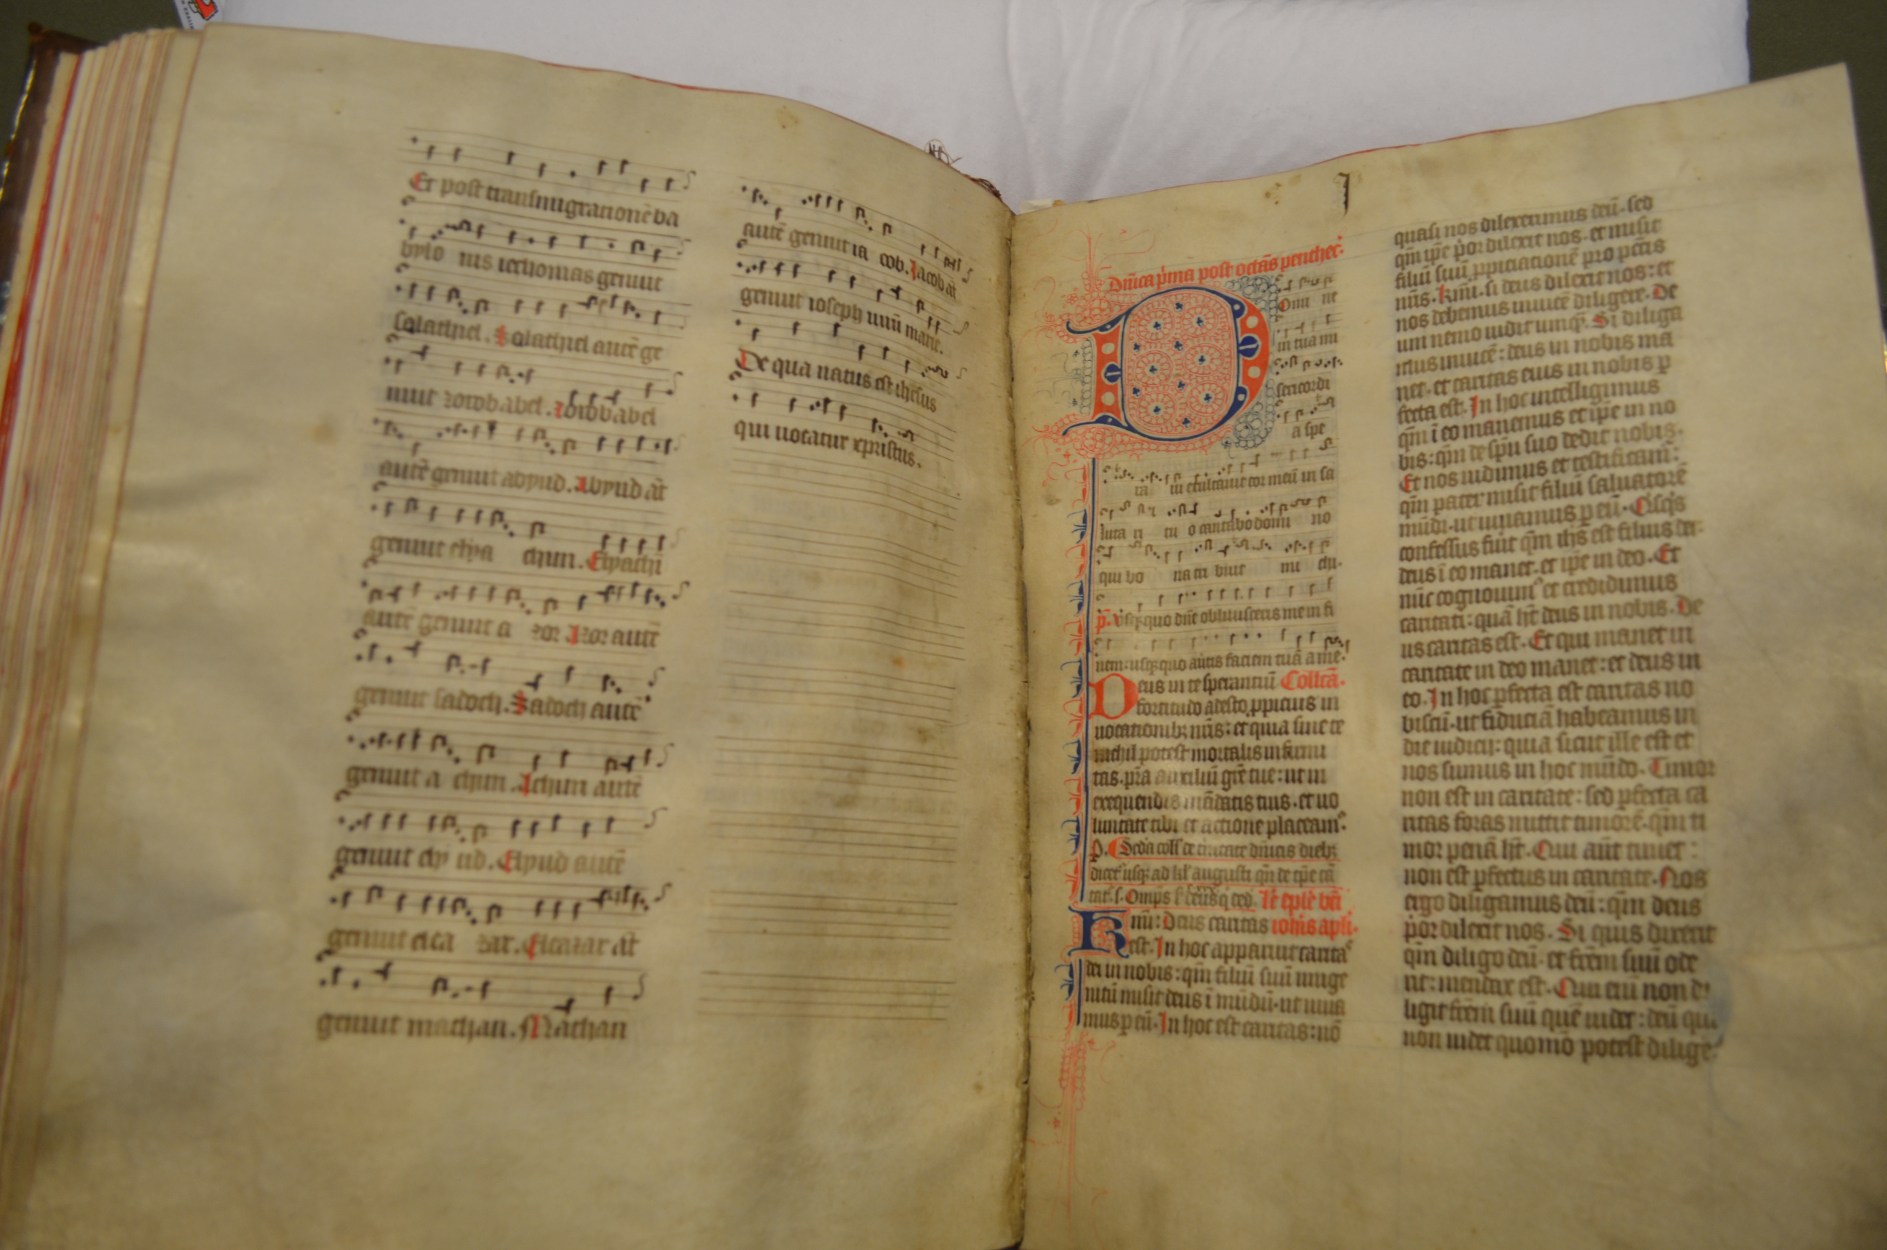 Et post transmigrationē ba
bylo nis iechonias genuit
salathiel. Salathiel autē ge
nuit zorobabel. Zorobabel
autē genuit abyud. Abyud āt
genuit elya chim. Elyachī
autē genuit a zor. Azor autē
genuit sadoch. Sadoch autē
genuit a chim. Achim autē
genuit ely ud. Elyud autē
genuit elea zar. Eleazar āt
genuit mathan. Mathan
autē genuit ia cob. Jacob āt
genuit ioseph uirū marie.
De qua natus est ihesus
qui uocatur xpristus.
Dn̄ica p̄ma post octās penthec̄.
Domi ne
in tua mi
sericordi
a spe
ra ui exultauit cor meū in sa
luta ri tu o cantabo domi no
qui bo na tri buit mi chi.
p̄. Vsq̄quo dn̄e obliuisceris me in fi
nem: usq̄quo auertis faciem tuā a me.
Deus in te sperantiū Collcā.
fortitudo adesto ꝓpicius in
uocationibꝫ nr̄is: et quia sine te
nichil potest mortalis infirmi
tas. p̄ra auxiliū gr̄e tue: ut in
exequendis mādatis tuis. et uo
luntate tibi et actione placeam᷒.
Kmī: Deus caritas iohīs apl̄i.
est. In hoc apparuit carita᷒
dei in nobis: qm̄ filiū suū unige
nitū misit deus ī mūdū. ut uiua
mus ꝑ eū. In hoc est caritas: nō
quasi nos dilexerimus deū. sed
qm̄ ip̄e p̄or dilexit nos. et misit
filiū suū ꝓpiciationē pro pc̄tis
nr̄is. Kmī. si deus dilexit nos: et
nos debemus inuicē diligere. De
um nemo uidit umq̄. Si diliga
mus inuicē: deus in nobis ma
net. et caritas eius in nobis ꝑ
fecta est. In hoc intelligimus
qm̄ ī eo manemus et ip̄e in no
bis: qm̄ de sp̄u suo dedit nobis.
Et nos uidimus et testificam᷒:
qm̄ pater misit filiū saluatorē
mūdi. ut uiuamus ꝑ eū. Quisq̄s
confessus fuit qm̄ ih̄s est filius dei.
deus ī eo manet. et ip̄e in deo. Et
nūc cognouim᷒ et credidimus
caritati: quā h̄t deus in nobis. De
us caritas est. Et qui manet in
caritate in deo manet: et deus in
eo. In hoc ꝑfecta est caritas no
biscū. ut fiduciā habeamus in
die iudicij: quia sicut ille est et
nos sumus in hoc mūdo. Timor
non est in caritate: sed ꝑfecta ca
ritas foras mittit timorē. qm̄ ti
mor penā h̄t. Qui aūt timet:
non est ꝑfectus in caritate. Nos
ergo diligamus deū: qm̄ deus
p̄or dilexit nos. Si quis dixerit
qm̄ diligo deū. et fr̄em suū ode
rit: mendax est. Qui eni non di
ligit fr̄em suū quē uidet: deū quē
non uidet quomō potest dilige